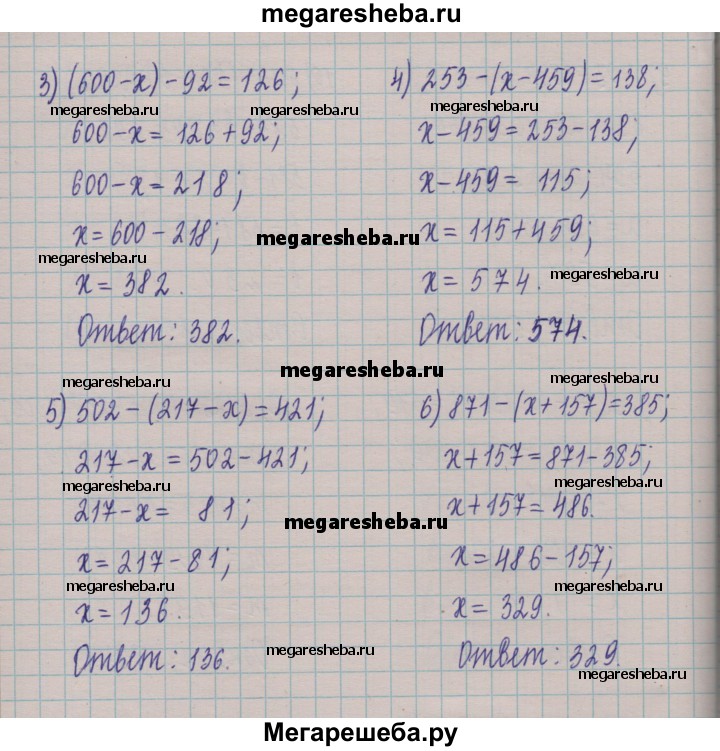 megaresheba.ru
3) (600-x)-92=126;
megaresheba.ru megaresheba.ru
600-x=126+92;
600-x=218;
x=600-218;
megaresheba.ru
megaresheba.ru
x=382.
Ответ: 382.
4) 253-(x-459)=138;
megaresheba.ru
x-459=253-138;
x-459= 115;
x=115+459;
x=574.
megaresheba.ru
Ответ: 574.
megaresheba.ru
megaresheba.ru
5) 502-(217-x)=421;
217-x=502-421;
megaresheba.ru
217-x= 81;
megaresheba.ru
x=217-81;
megaresheba.ru
x=136.
Ответ: 136.
megaresheba.ru
megaresheba.ru
6) 871-(x+157)=385;
x+157=871-385;
megaresheba.ru
x+157=486.
x=486-157;
megaresheba.ru
x=329.
Ответ: 329.
megaresheba.ru
Мегарешеба.ру